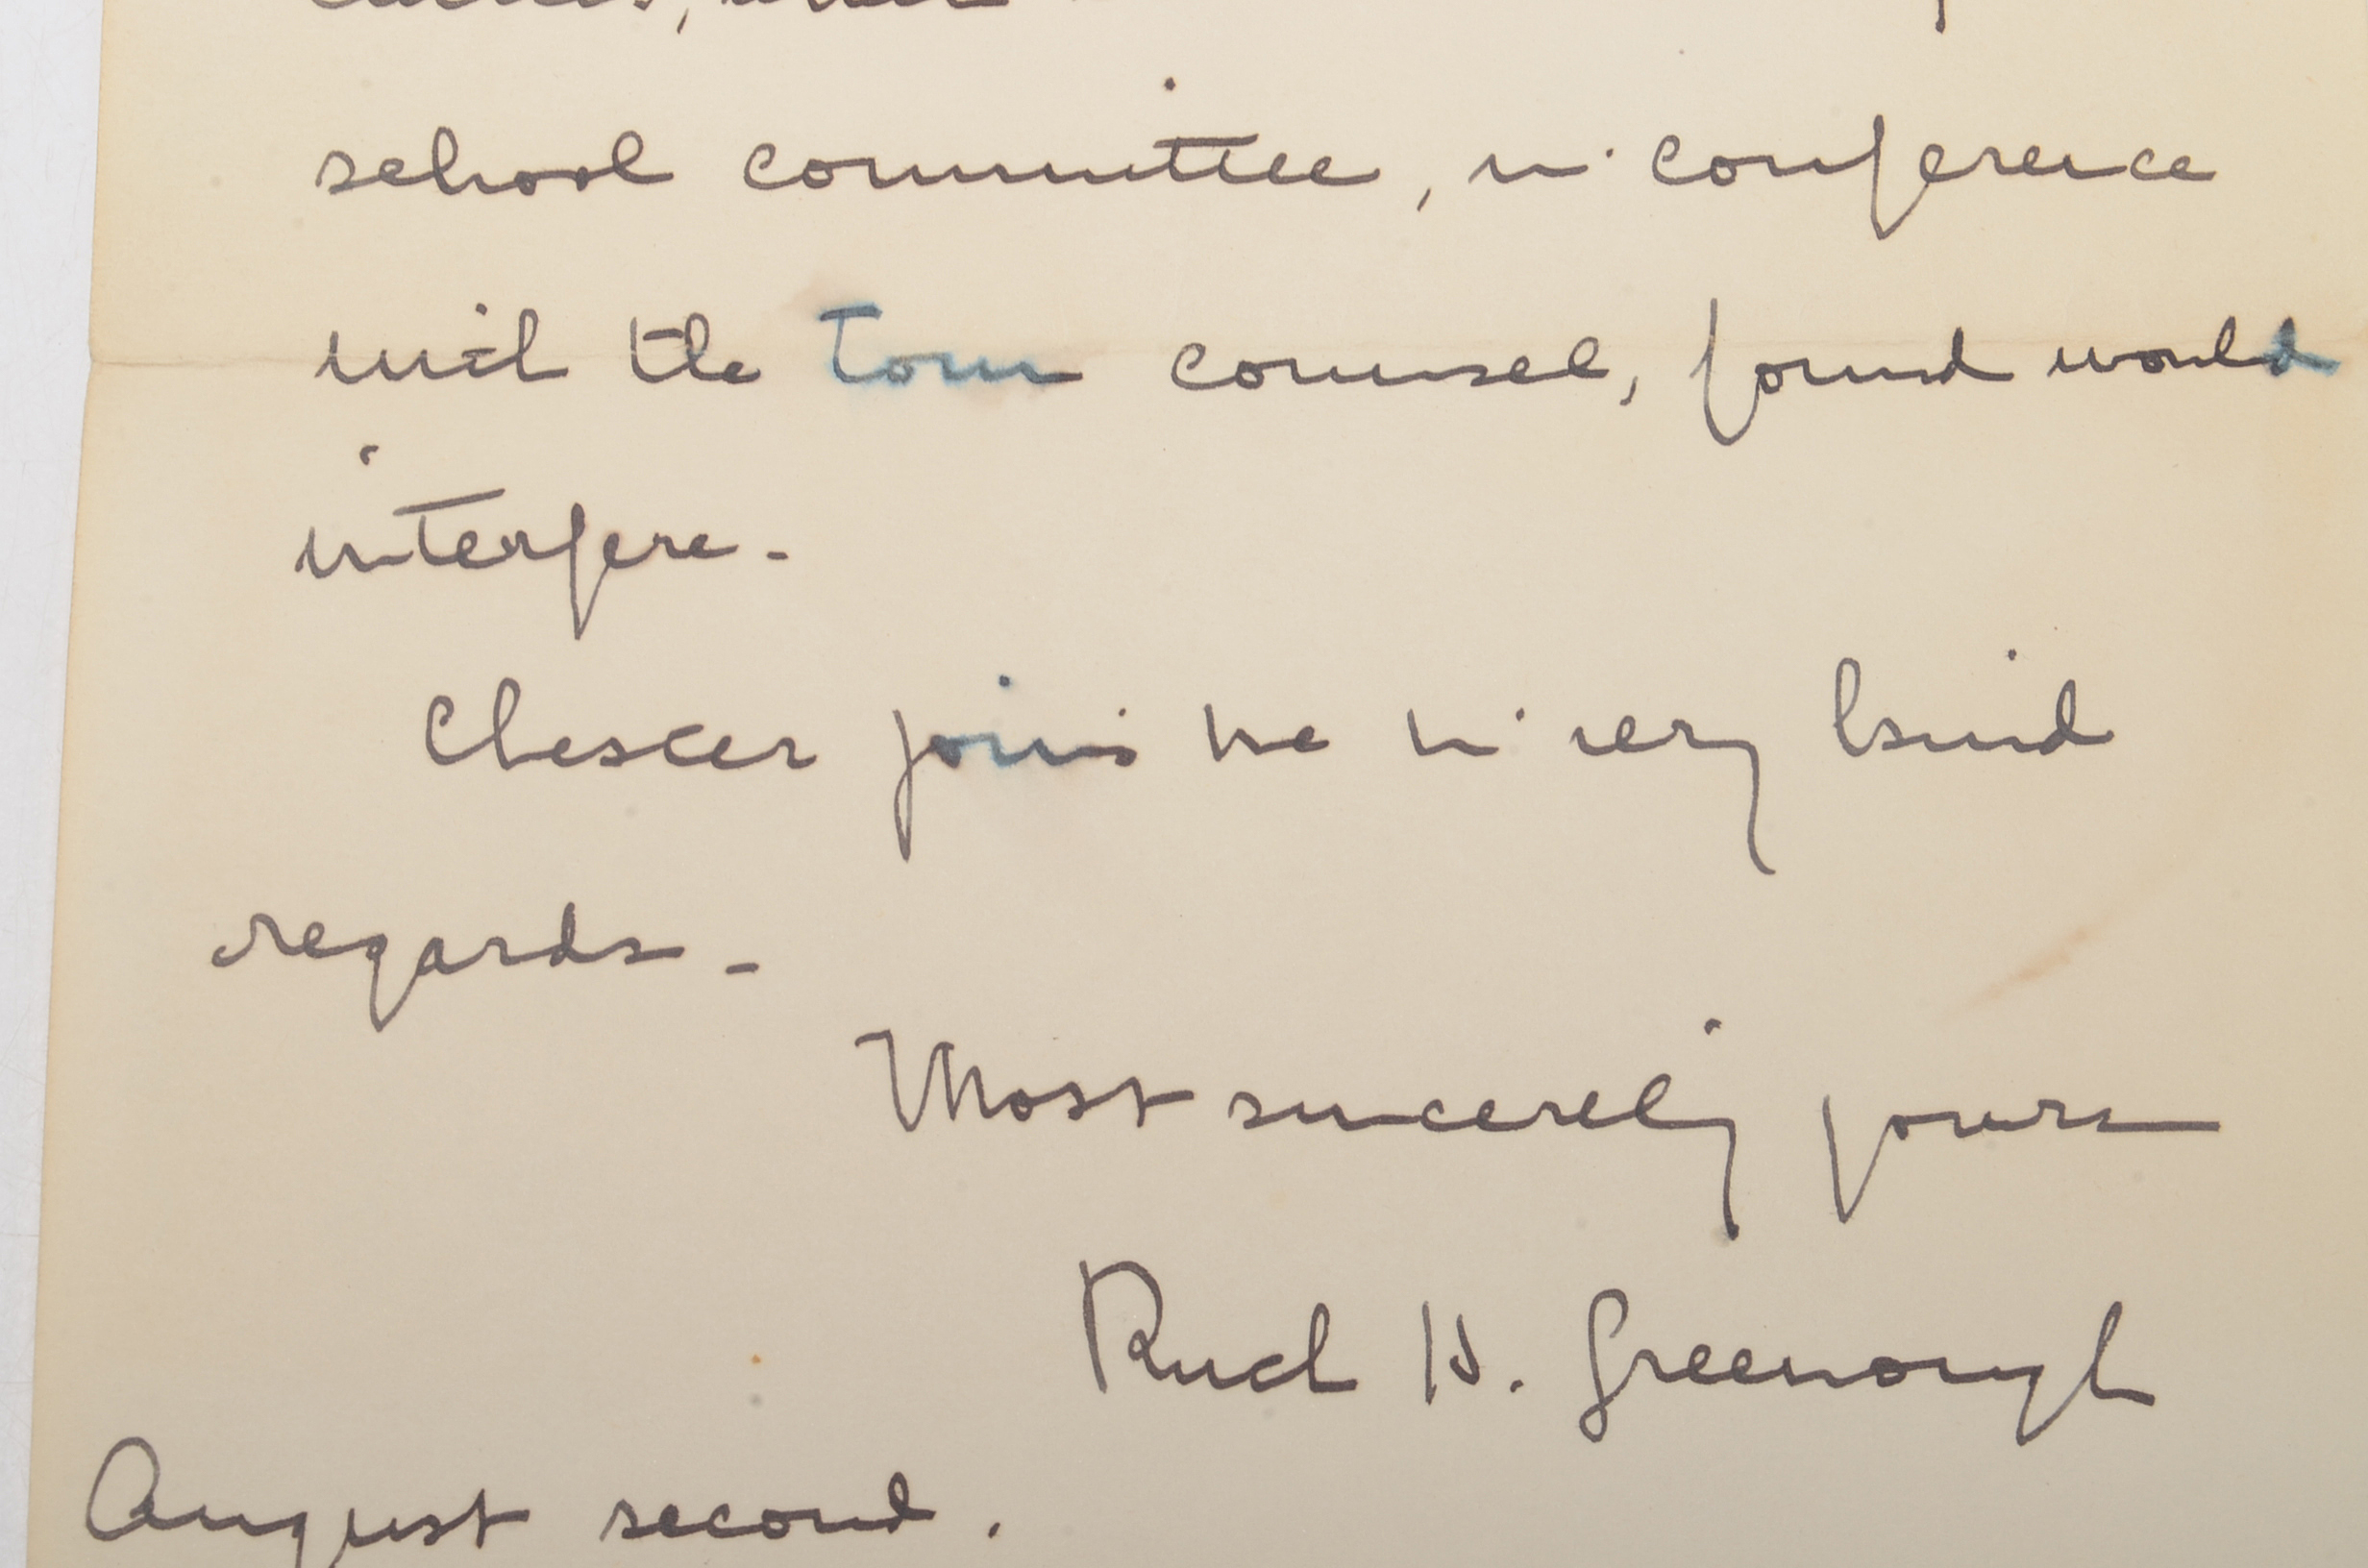 school committee, in conference
with the town counsel, found would
interfere -
Chester joins me in very kind
regards -
Most sincerely yours
Ruth H. Greenough
August second.